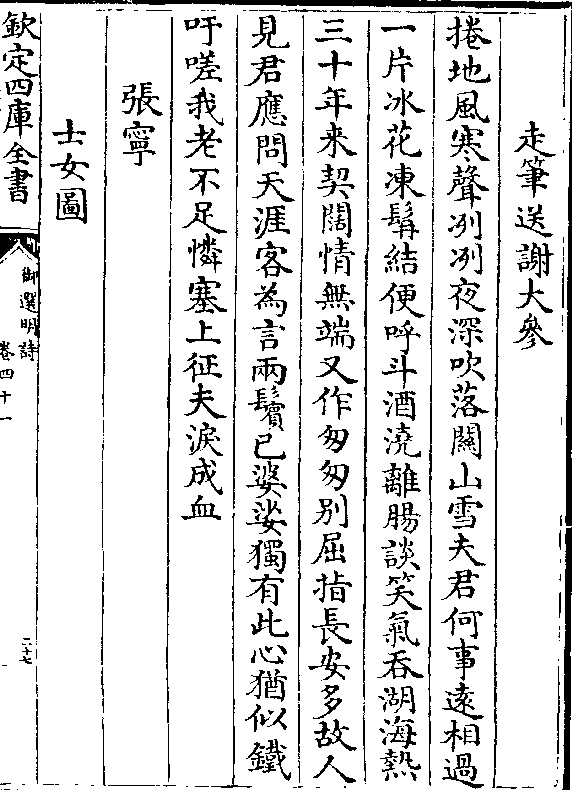 走筆送謝大參
捲地風寒聲冽冽夜深吹落關山雪夫君何事遠相過
一片冰花凍鬅結便呼斗酒澆離腸談笑氣吞湖海熱
三十年来契闊情無端又作匆匆別屈指長安多故人
見君應問天涯客為言兩鬢已婆娑獨有此心猶似鐵
吁嗟我老不足憐塞上征夫淚成血
張寧
士女圖
欽定四庫全書
御選明詩
卷四十一
二十七